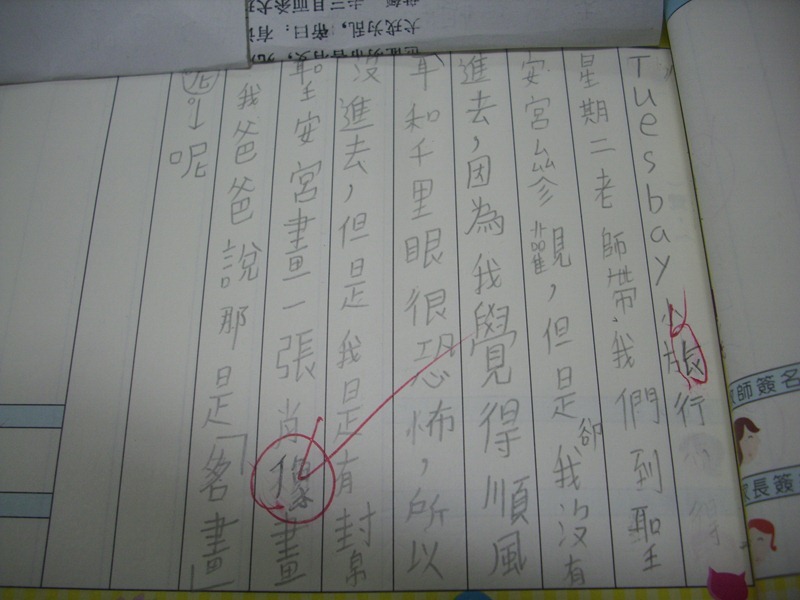 Tuesbay小旅行
星期二老師帶我們到聖
安宮參觀，但是卻我沒有
進去，因為我覺得順風
耳和千里眼很恐怖，所以
沒進去，但是我是有幫
聖安宮畫一張肖像畫
我爸爸說那是「名畫」
呢↓呢
師簽名
家長簽